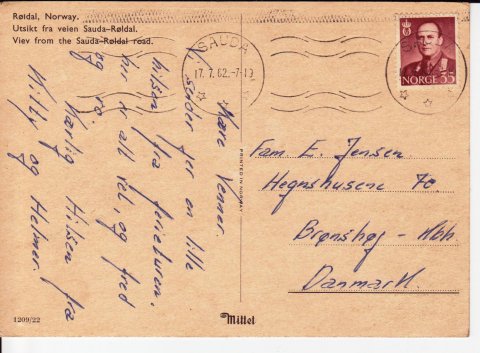 Røldal, Norway.
Utsikt fra veien Sauda-Røldal.
Viev from the Sauda-Røldal road.
SAUDA
17. 7. 62. -7-19
SAUDA
NORGE 35
Kære Venner.
Vi sender jer en lille
hilsen fra ferieturen.
her er all vel, og fred
og ro.
Kærlig Hilsen fra
Willy og Helmer.
PRINTED IN NORWAY
Fam E. Jensen
Hegnshusene 70.
Brønshøj - Kbh
Danmark.
1209/22
Mittet